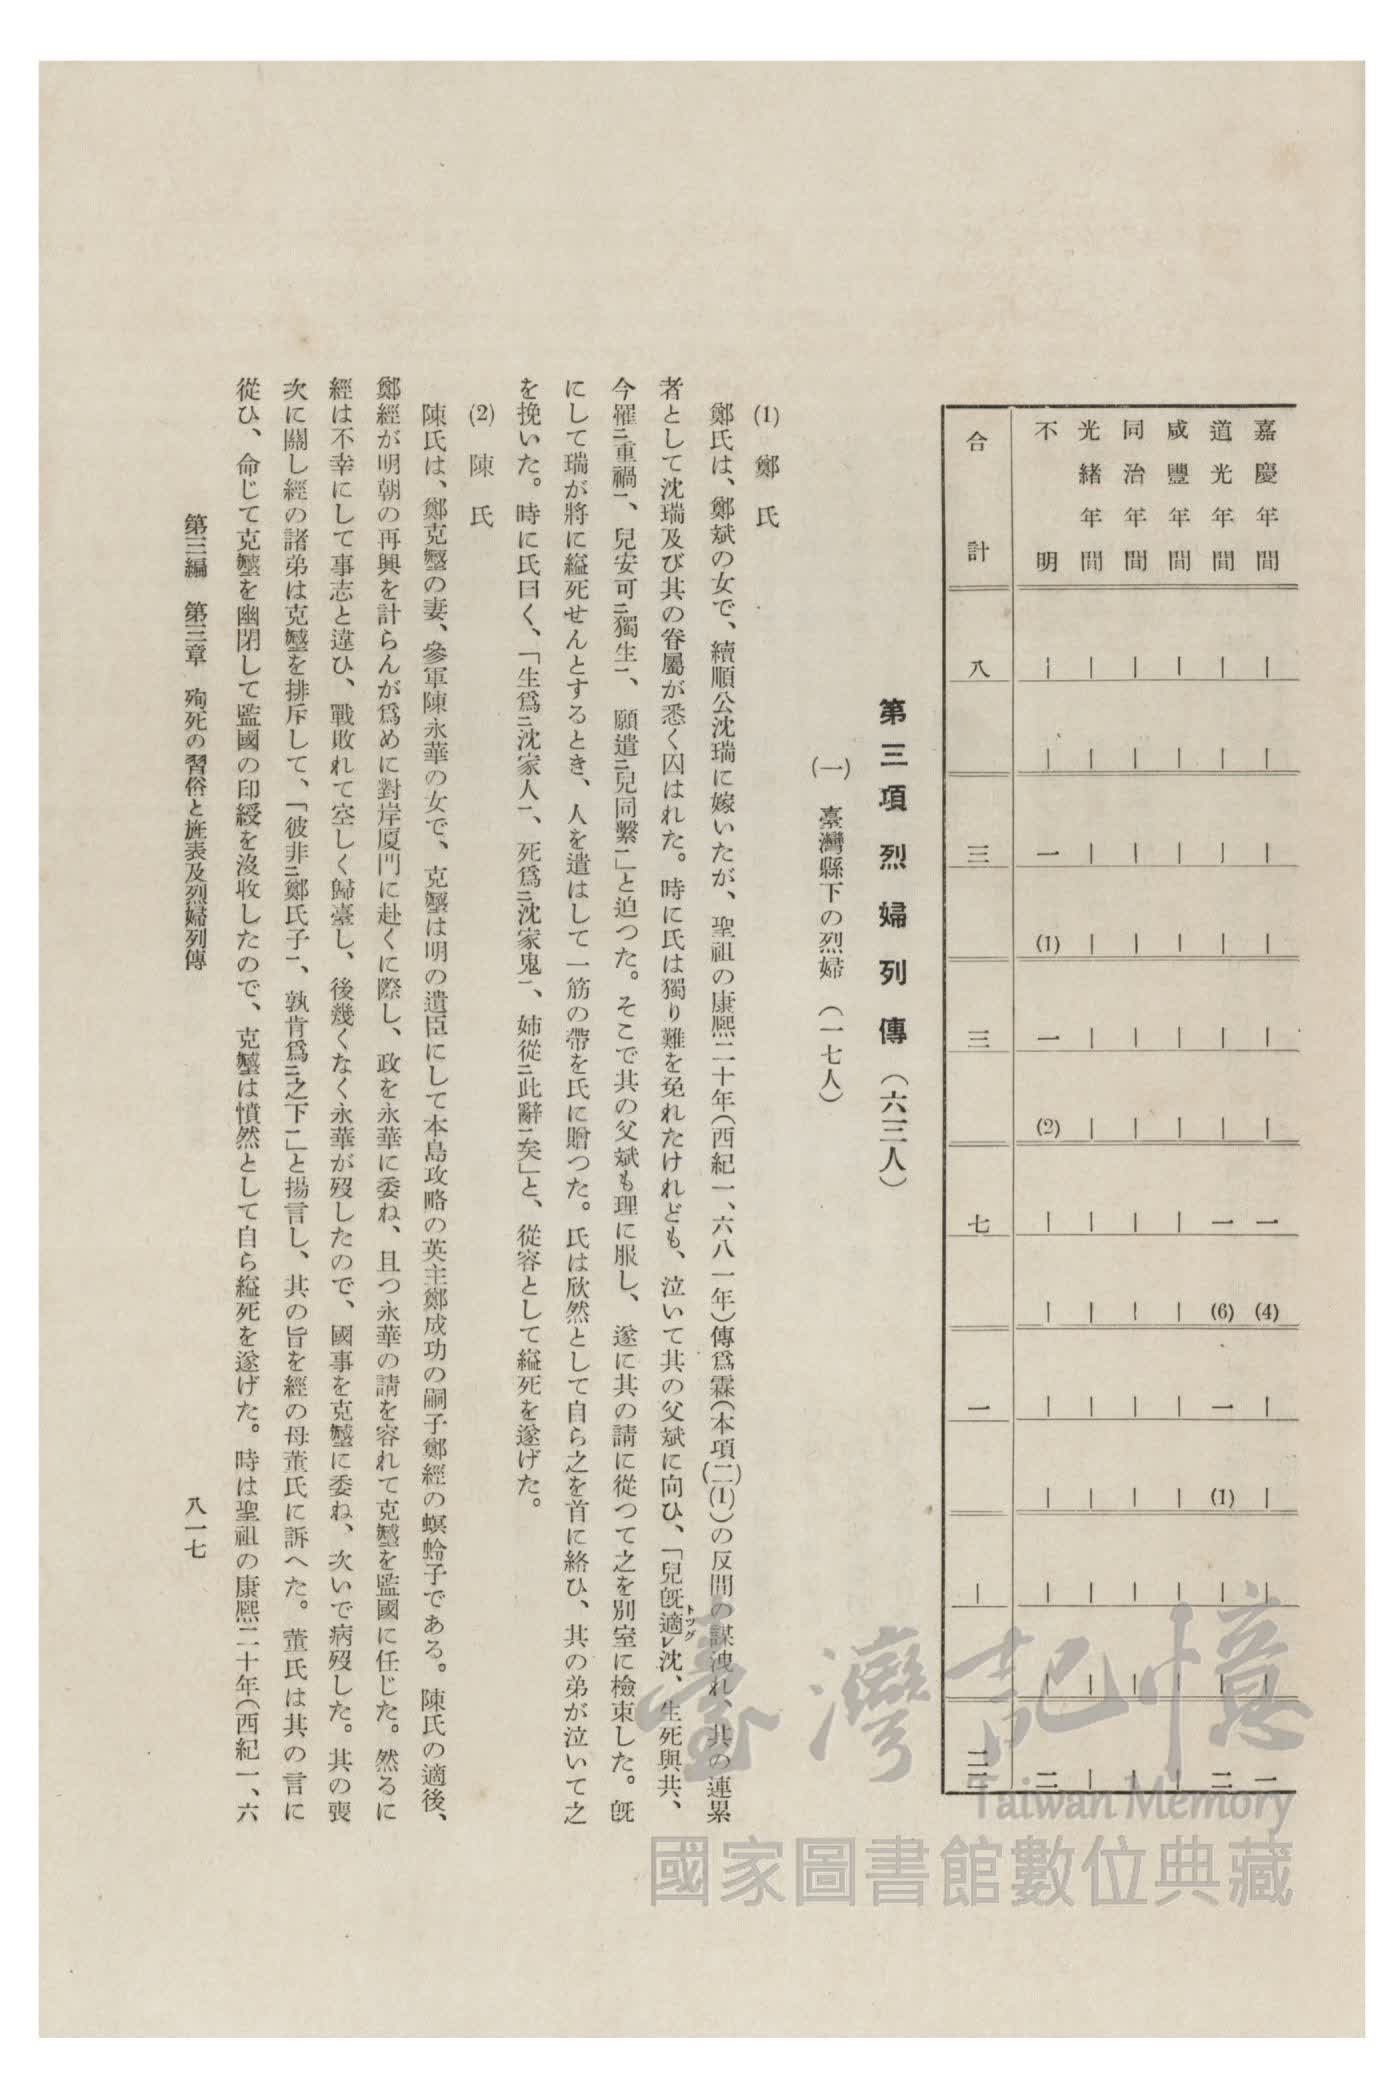 嘉慶年間 ｜ ｜ ｜ ｜ ｜ ｜ 一 (4) ｜ ｜ ｜ ｜ 一
道光年間 ｜ ｜ ｜ ｜ ｜ ｜ 一 (6) 一 (1) ｜ ｜ 二
咸豐年間 ｜ ｜ ｜ ｜ ｜ ｜ ｜ ｜ ｜ ｜ ｜ ｜ ｜
同治年間 ｜ ｜ ｜ ｜ ｜ ｜ ｜ ｜ ｜ ｜ ｜ ｜ ｜
光緒年間 ｜ ｜ ｜ ｜ ｜ ｜ ｜ ｜ ｜ ｜ ｜ ｜ ｜
不明 ｜ ｜ 一 (1) 一 (2) ｜ ｜ ｜ ｜ ｜ ｜ 二
合計 八 三 三 七 一 ｜ 二二
第三項 烈婦列傳（六三人）
(一) 臺灣縣下の烈婦（一七人）
(1) 鄭氏
鄭氏は、鄭斌の女で、續順公沈瑞に嫁いたが、聖祖の康熙二十年（西紀一、六八一年）傳爲霖（本項(二)(1)）の反間の謀洩れ、其の連累
者として沈瑞及び其の眷屬が悉く囚はれた。時に氏は獨り難を免れたけれども、泣いて其の父斌に向ひ、「兒旣適トツグㇾ沈、生死與共、
今罹ニ重禍一、兒安可ニ獨生一、願遣ニ兒同繫一」と迫つた。そこで其の父斌も理に服し、遂に其の請に從つて之を別室に檢束した。旣
にして瑞が將に縊死せんとするとき、人を遣はして一筋の帶を氏に贈つた。氏は欣然として自ら之を首に絡ひ、其の弟が泣いて之
を挽いた。時に氏曰く、「生爲ニ沈家人一、死爲ニ沈家鬼一、姉從ニ此辭一矣」と、從容として縊死を遂げた。
(2) 陳氏
陳氏は、鄭克𡒉の妻、參軍陳永華の女で、克𡒉は明の遺臣にして本島攻略の英主鄭成功の嗣子鄭經の螟蛉子である。陳氏の適後、
鄭經が明朝の再興を計らんが爲めに對岸厦門に赴くに際し、政を永華に委ね、且つ永華の請を容れて克𡒉を監國に任じた。然るに
經は不幸にして事志と違ひ、戰敗れて空しく歸臺し、後幾くなく永華が歿したので、國事を克𡒉に委ね、次いで病歿した。其の喪
次に關し經の諸弟は克𡒉を排斥して、「彼非ニ鄭氏子一、孰肯爲ニ之下一」と揚言し、其の旨を經の母董氏に訴へた。董氏は其の言に
從ひ、命じて克𡒉を幽閉して監國の印綬を沒收したので、克𡒉は憤然として自ら縊死を遂げた。時は聖祖の康熙二十年（西紀一、六
第三編 第三章 殉死の習俗と旌表及烈婦列傳
八一七
臺灣記憶
Taiwan Memory
國家圖書館數位典藏